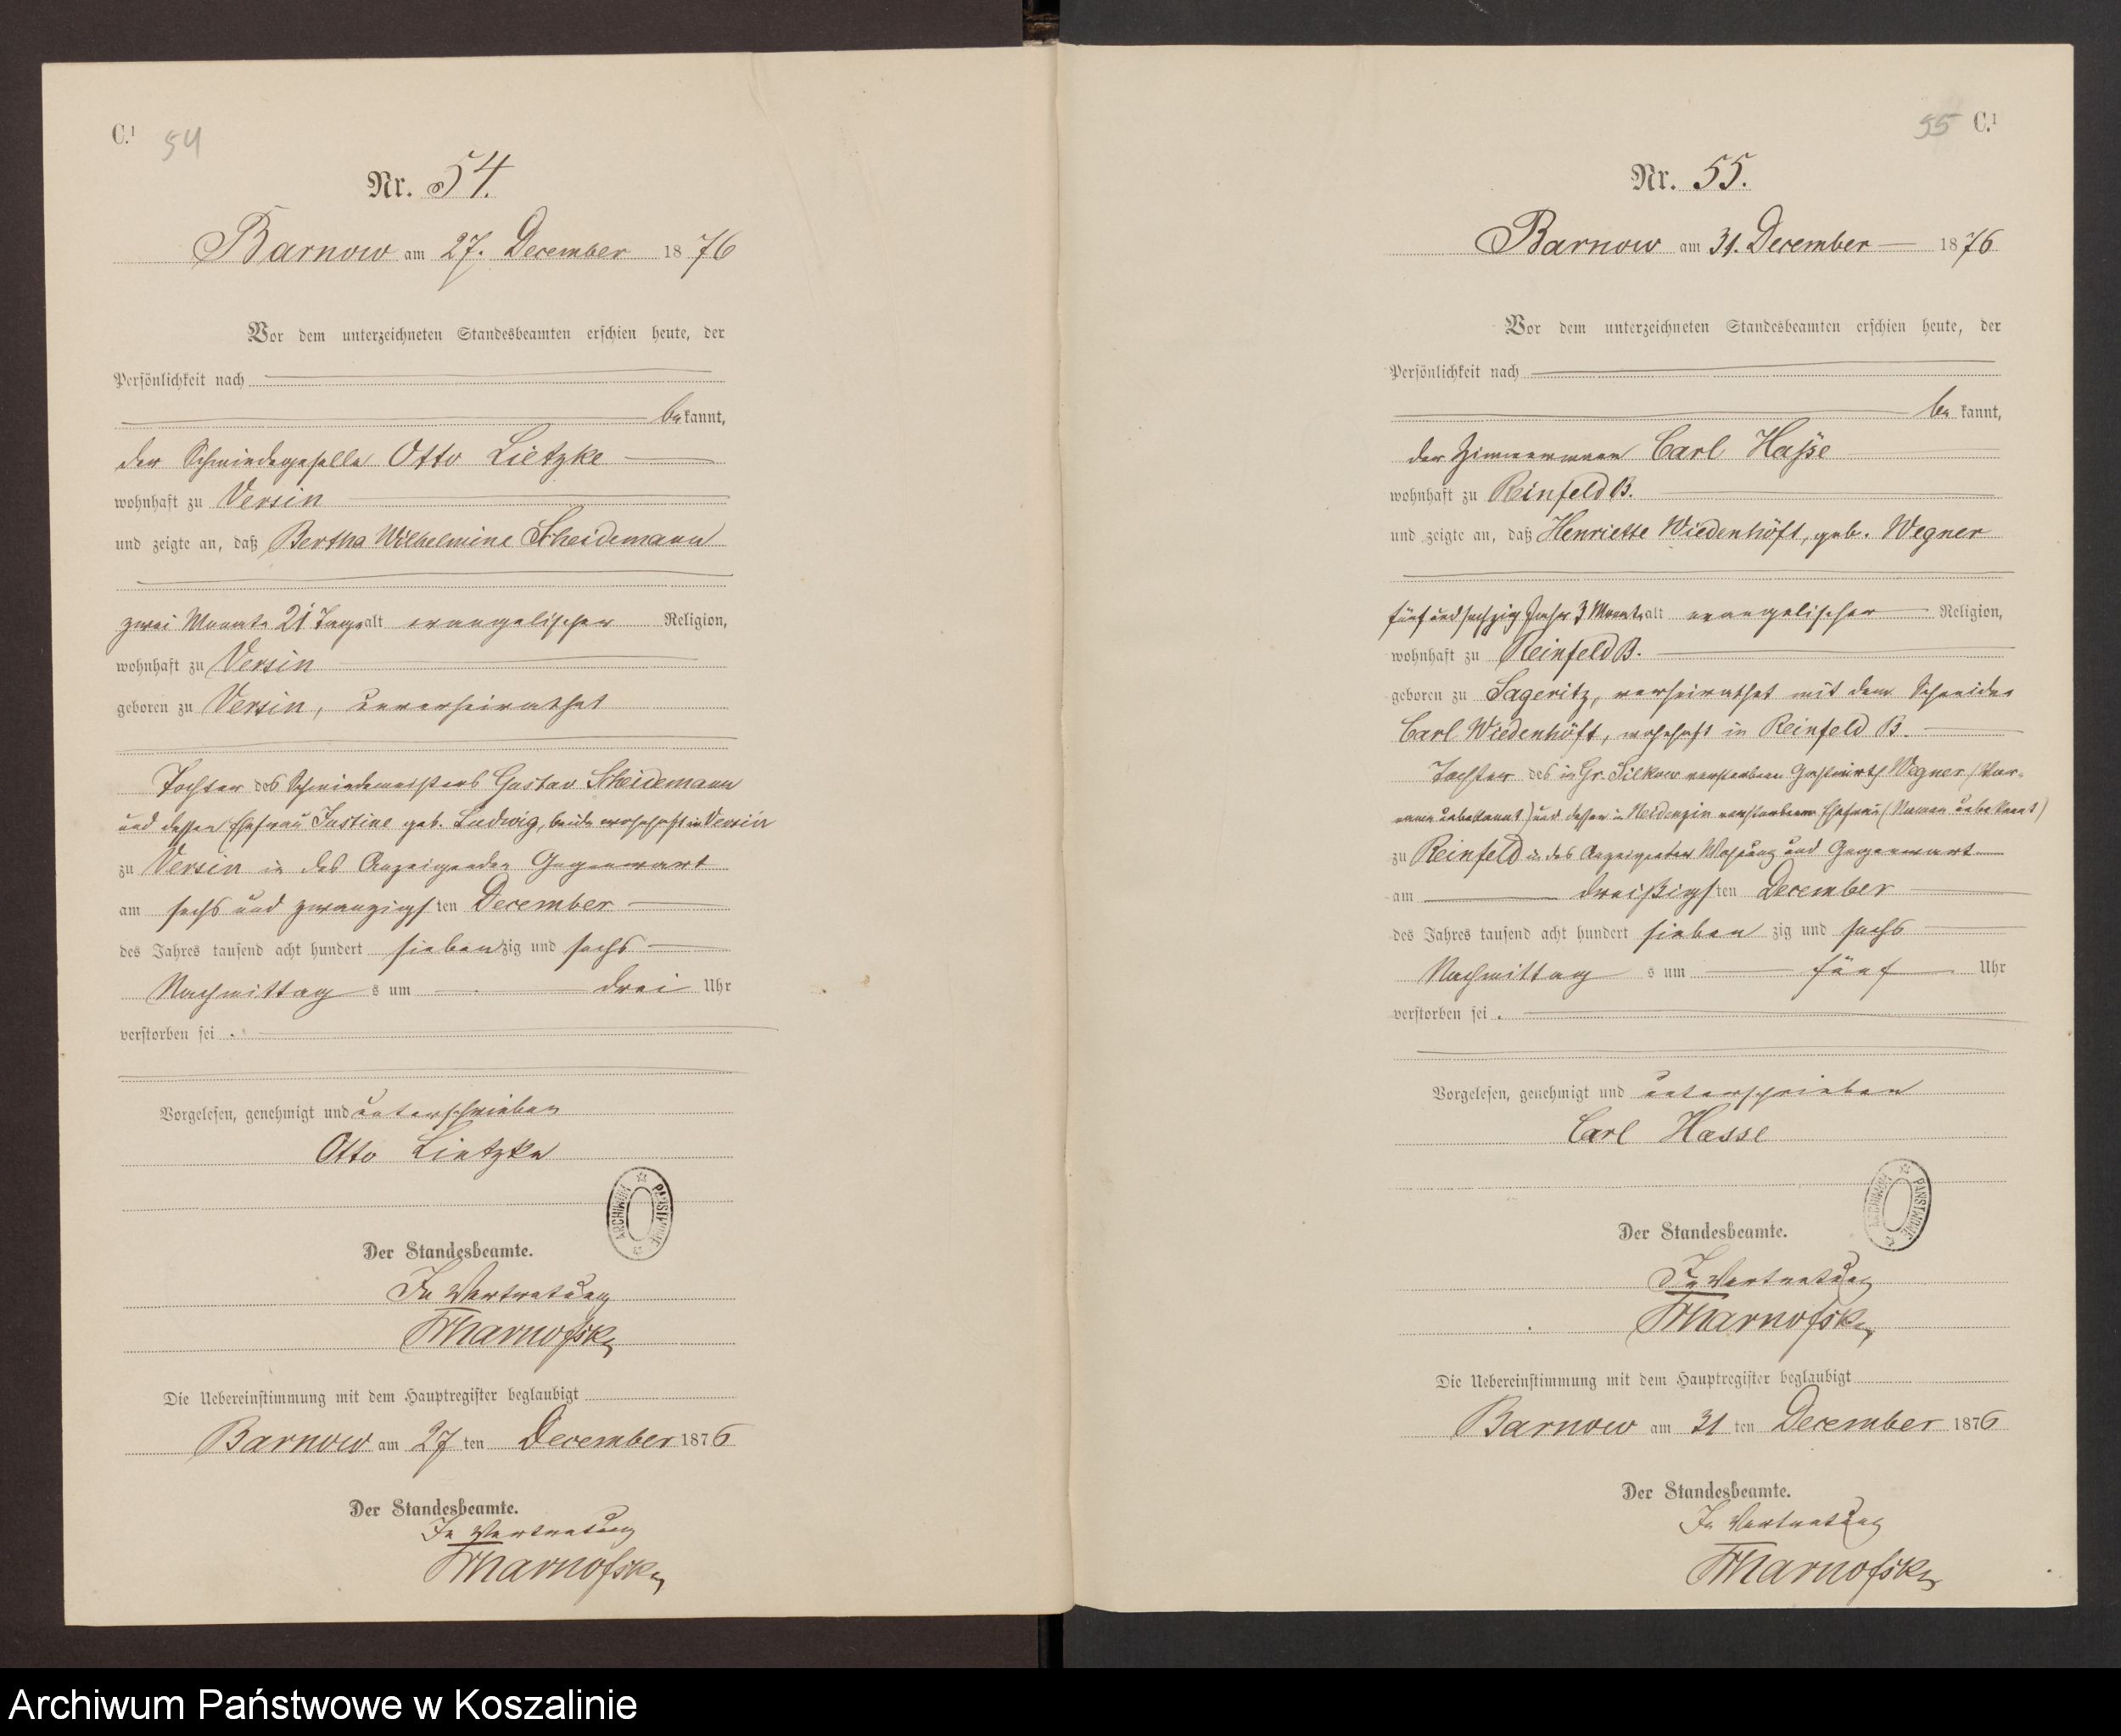 C.1 54
Nr. 54.
Barnow am 27. December 1876
Vor dem unterzeichneten Standesbeamten erschien heute, der
Persönlichkeit nach
bekannt,
der Schmiedegeselle Otto Lietzke
wohnhaft zu Versin
und zeigte an, daß Bertha Wilhelmine Scheidemann
zwei Monate 21 Tage alt evangelischer Religion,
wohnhaft zu Versin
geboren zu Versin, unverheirathet
Tochter des Schmiedemeisters Gustav Scheidemann
und dessen Ehefrau Justine geb. Ludwig, beide wohnhaft in Versin
zu Versin in des Anzeigenden Gegenwart
am sechs und zwanzigsten December
des Jahres tausend acht hundert siebenzig und sechs
Nachmittags um drei Uhr
verstorben sei.
Vorgelesen, genehmigt und unterschrieben
Otto Lietzke
ARCHIWUM PAŃSTWOWE
Der Standesbeamte.
In Vertretung
Die Uebereinstimmung mit dem Hauptregister beglaubigt
Barnow am 27ten December 1876
Der Standesbeamte.
In Vertretung
55 C.1
Nr. 55.
Barnow am 31. December 1876
Vor dem unterzeichneten Standesbeamten erschien heute, der
Persönlichkeit nach
bekannt,
der Zimmermann Carl Hasse
wohnhaft zu Reinfeld B.
und zeigte an, daß Henriette Wiedenhöft, geb. Wegner
fünf und sechzig Jahr 3 Monate alt evangelischer Religion,
wohnhaft zu Reinfeld B.
geboren zu Sageritz, verheirathet mit dem Schneider
Carl Wiedenhöft, wohnhaft in Reinfeld B.
Tochter des in Gr. Silkow verstorbenen Gastwirth Wegner (Vor-
name unbekannt) und dessen in verstorbenen Ehefrau (Namen unbekannt)
zu Reinfeld in des Anzeigenden Wohnung und Gegenwart
am dreißigsten December
des Jahres tausend acht hundert siebenzig und sechs
Nachmittags um fünf Uhr
verstorben sei.
Vorgelesen, genehmigt und unterschrieben
Carl Hasse
ARCHIWUM PAŃSTWOWE
Der Standesbeamte.
In Vertretung
Die Uebereinstimmung mit dem Hauptregister beglaubigt
Barnow am 31ten December 1876
Der Standesbeamte.
In Vertretung
Archiwum Państwowe w Koszalinie